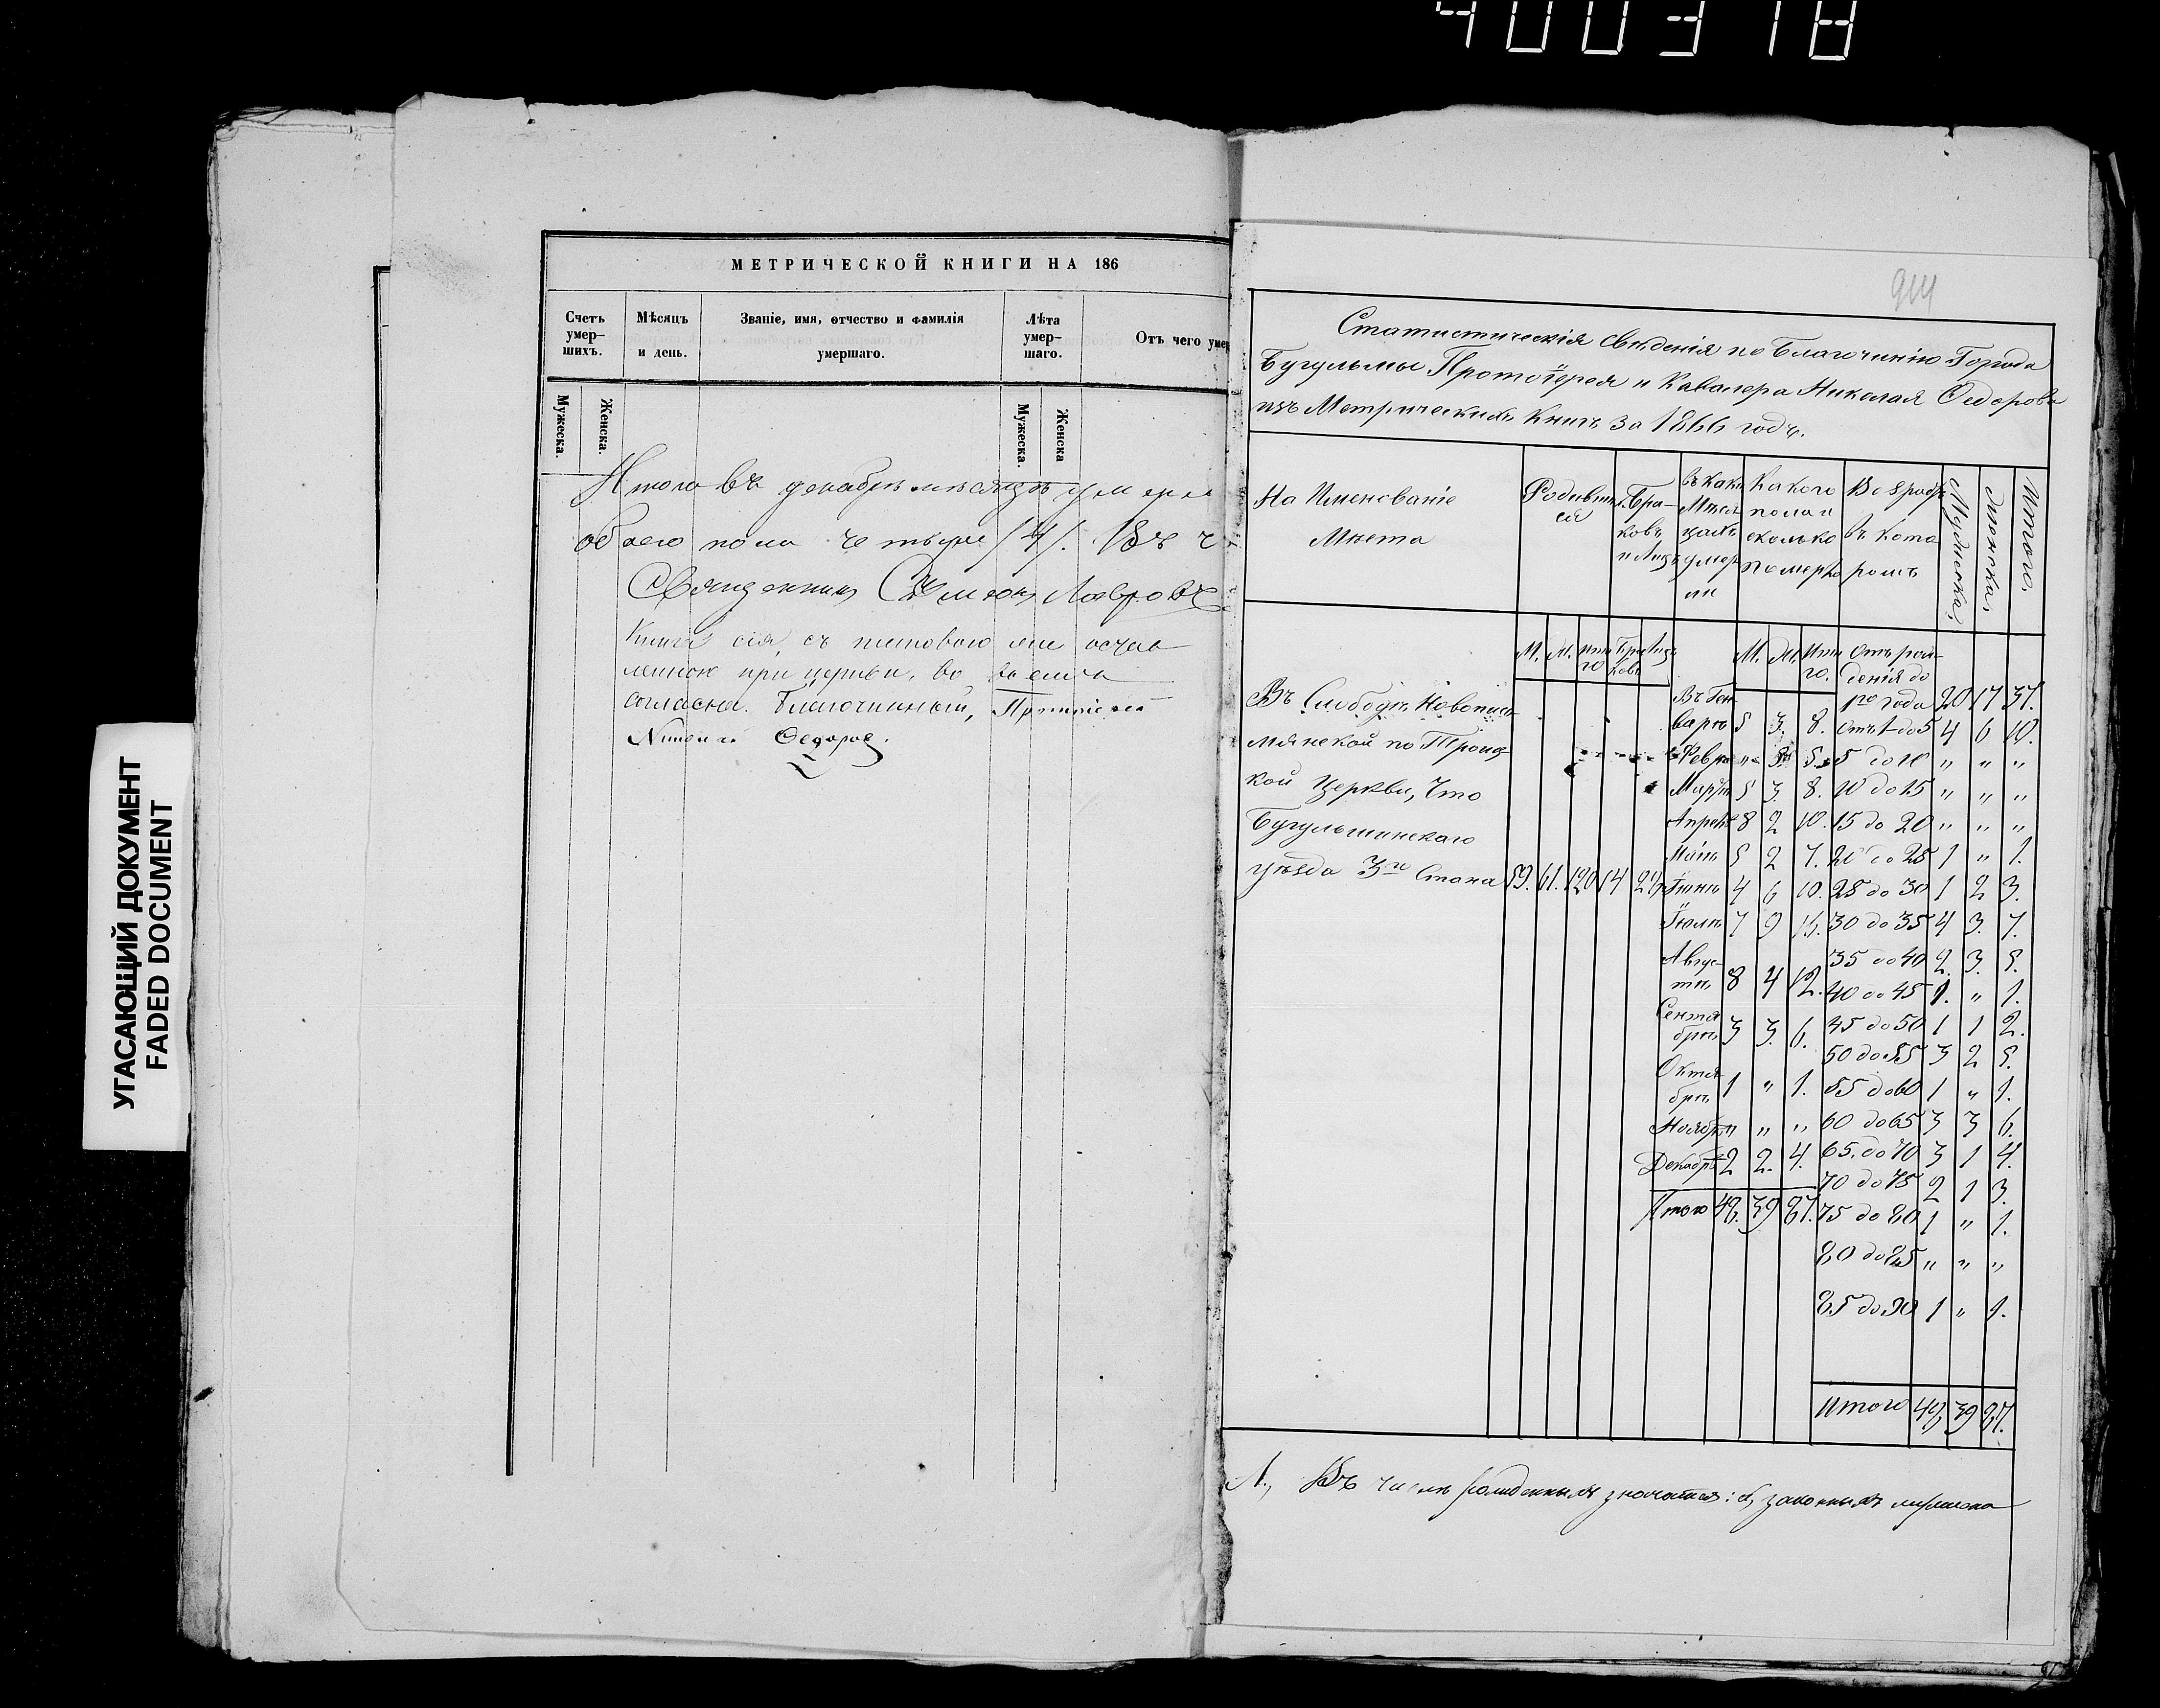 400318
УГАСАЮЩИЙ ДОКУМЕНТ
FADED DOCUMENT
МЕТРИЧЕСКОЙ КНИГИ НА 186
Счетъ умер-шихъ.
Мѣсяцъ и день.
Званіе, имя, отчество и фамилія умершаго.
Лѣта умер-шаго.
Отъ чего умер
Мужеска.
Женска.
Мужеска.
Женска
Итого въ декабрѣ мѣсяцѣ умерло
обоего пола четыре /4/. Въ ч
Священникъ Симеонъ Лавровъ
Книга сія, съ таковою же остав
ленною при церкви, во всемъ
согласна. Благочинный, Протоіерей
Николай Ѳедоровъ.
914
Статистическія свѣденія по Благочинію Города
Бугульмы Протоіерея и Кавалера Николая Ѳедорова
изъ Метрическихъ Книгъ за 1866 годъ.
На Именованіе Мѣста
Родивших ся
Бра-ковъ и Лицъ
Въ какихъ Мѣся цахъ умер ли
Какого пола и сколько померло
Возрастъ въ кото ромъ
Мужеска.
Женска.
Итого.
М. Ж. Ито го Бра ковъ Лицъ
М. Ж. Ито го.
Въ Слободѣ Новопись
мянской по Троиц
кой Церкви, Что
Бугульминскаго
уѣзда 3го Стана 59. 61. 120 14 28
Въ Ген варѣ 5 3. 8.
Февра „ 5. 5.
Мартѣ 5 3. 8.
Апрелѣ 8 2 10.
Маіѣ 5 2 7.
Іюнѣ 4 6 10.
Іюлѣ 7 9 16.
Авгус-тѣ 8 4 12.
Сентя брѣ 3 3. 6.
Октя-брѣ 1 „ 1.
Ноябрѣ „ „ „
Декабрѣ 2 2. 4.
Итого 48. 39 87.
Отъ рож-денія до 1го года 20 17 37.
Отъ 1 до 5 4 6 10.
5 до 10 „ „ „
10 до 15 „ „ „
15 до 20 „ „ „
20 до 25 1 „ 1.
25 до 30 1 2 3.
30 до 35 4 3. 7.
35 до 40 2. 3. 5.
40 до 45 1. „ 1.
45 до 50 1 1 2.
50 до 55 3 2 5.
55 до 60 1 „ 1.
60 до 65 3 3 6.
65. до 70 3 1 4.
70 до 75 2 1 3.
75 до 80 1 „ 1.
80 до 85 „ „ „
85 до 90 1 „ 1.
Итого 48 39 87.
А., Въ числѣ рожденныхъ значатся: а, законныхъ мужеска